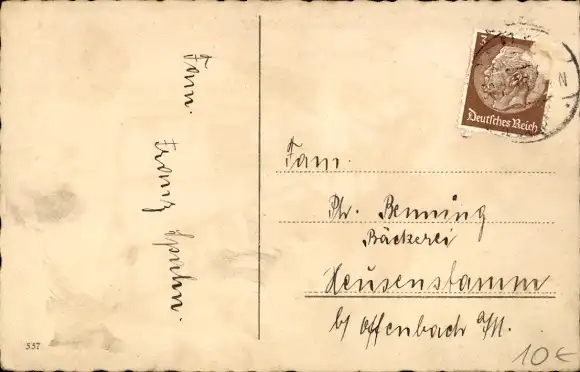 Fam.
Franz Spahn.
3
Deutsches Reich
N
Fam.
Ph. Benning
Bäckerei
Heusenstamm
b/ Offenbach a/M.
557
10€